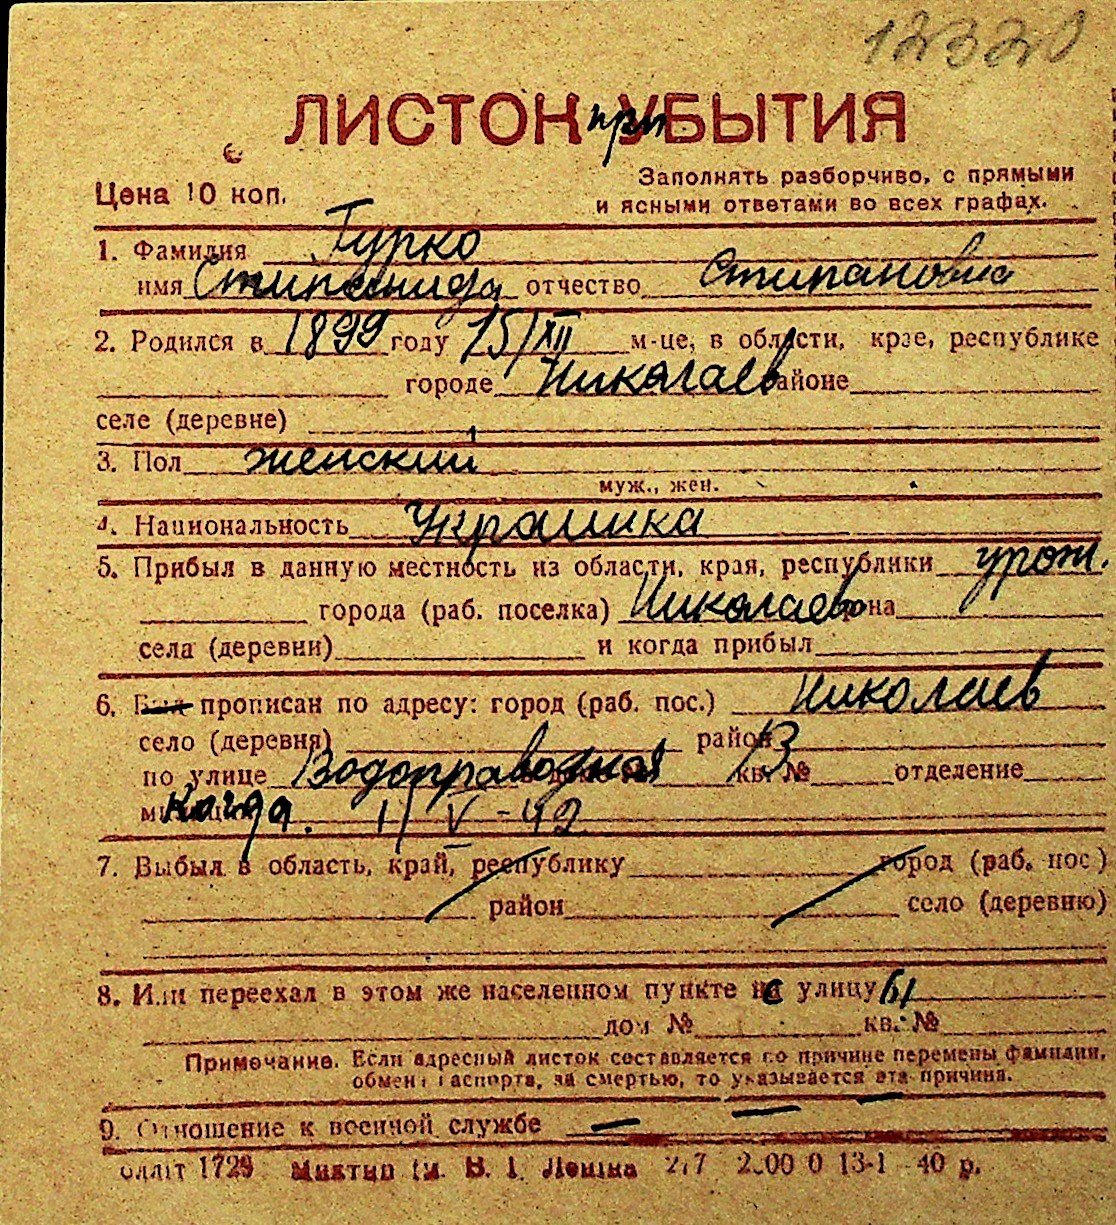 12320
ЛИСТОК при УБЫТИЯ
Цена 10 коп.
Заполнять разборчиво, с прямыми
и ясными ответами во всех графах.
1. Фамилия Гурко
имя Стипанида отчество Стипановна
2. Родился в 1899 году 15/XII м-це, в области, крае, республике
городе Николаев районе
селе (деревне)
3. Пол женский
муж., жен.
4. Национальность Украинка
5. Прибыл в данную местность из области, края, республики урож.
города (раб. поселка) Николаев района
села (деревни) и когда прибыл
6. Был прописан по адресу: город (раб. пос.) Николаев
село (деревня) район
по улице Водоправодная 13 кв. № отделение
Когда. 11 V - 42
7. Выбыл в область, край, республику город (раб. пос)
район село (деревню)
8. Или переехал в этом же населенном пункте с улицы
дом № кв. №
Примечание. Если адресный листок составляется по причине перемены фамилии,
обмена паспорта, за смертью, то указывается эта причина.
9. Отношение к военной службе —
1729 В. І. Леніна 2.00 0 13-1 40 р.